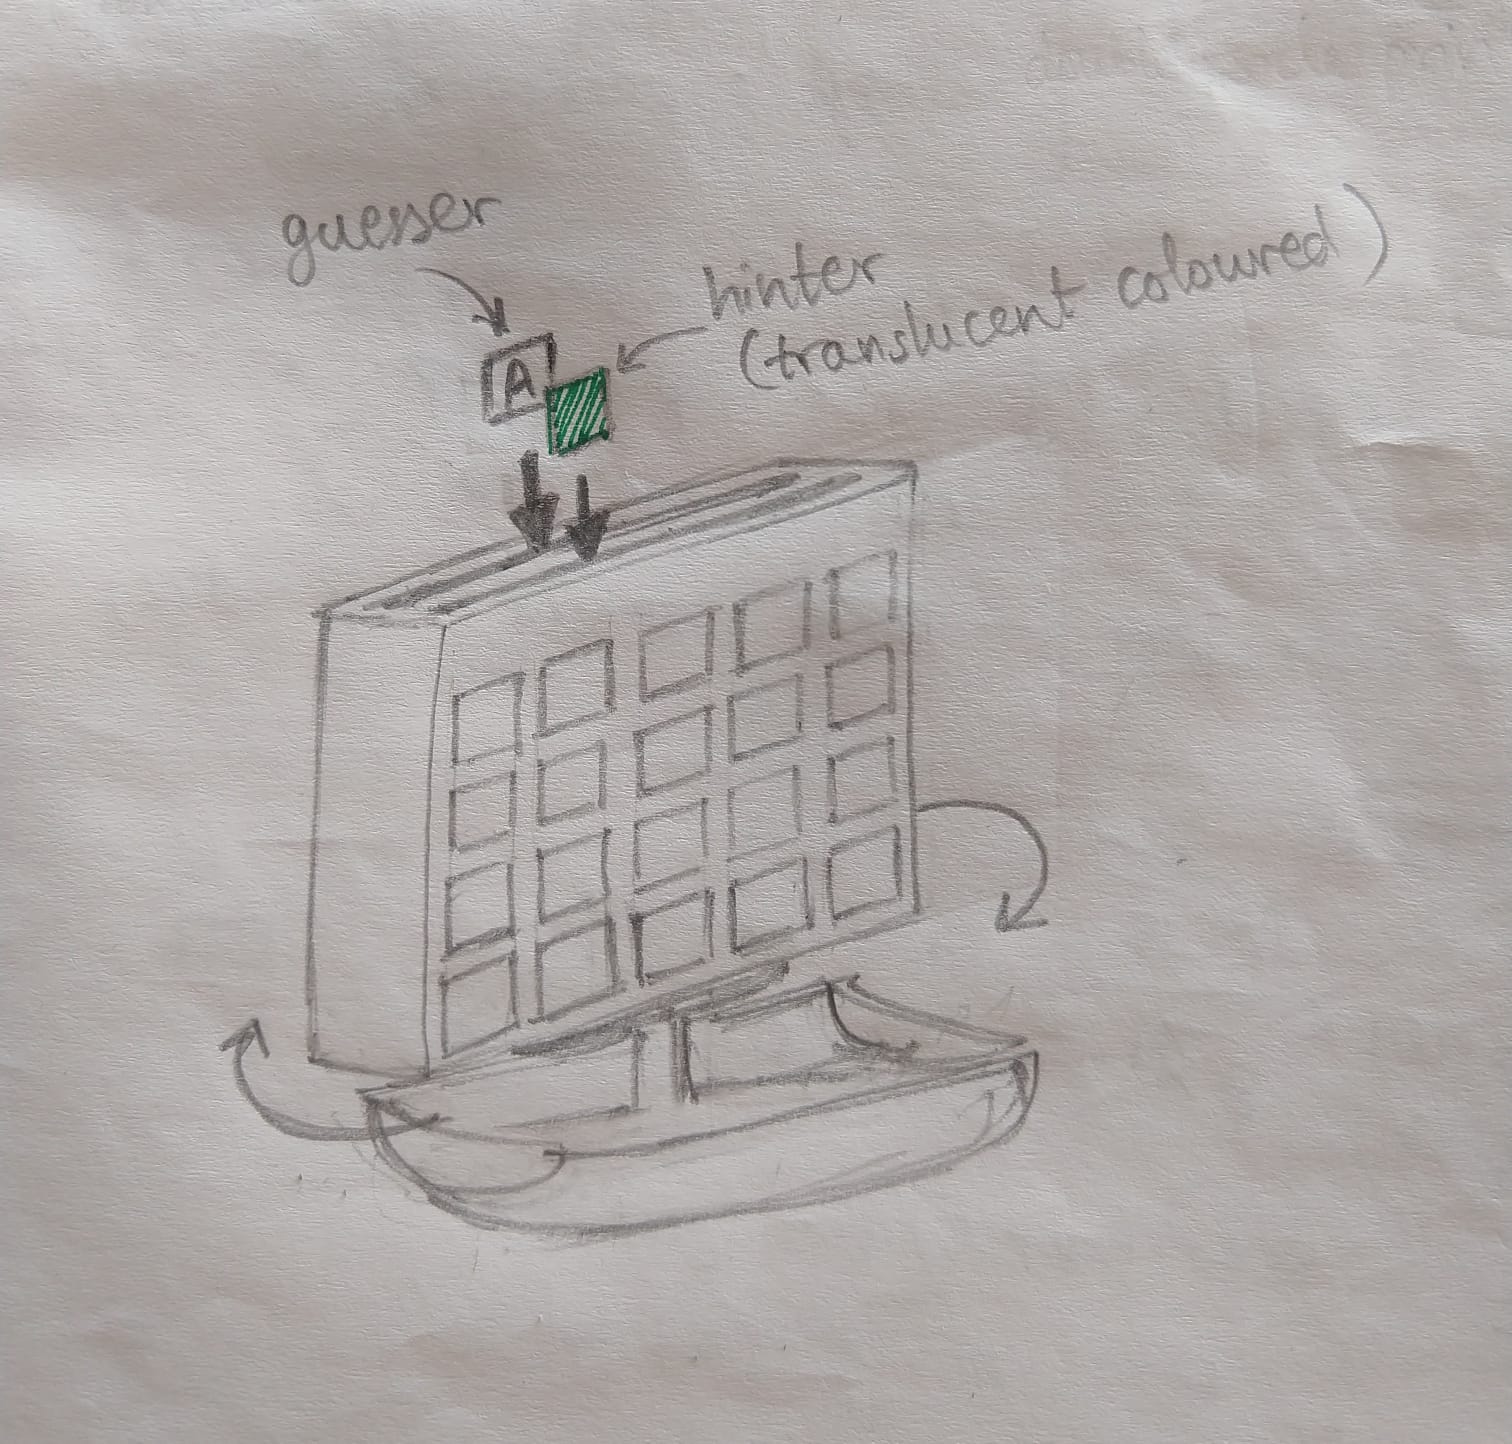 guesser
hinter
(translucent coloured)
A